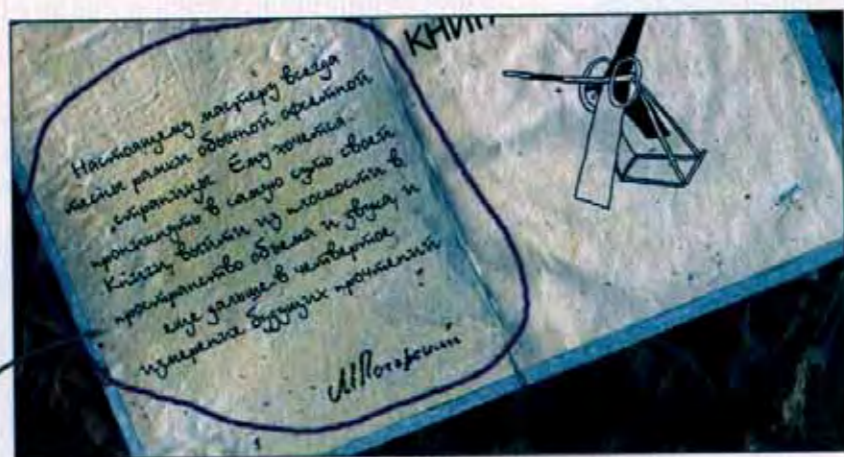 Настоящему мастеру всегда
тесны рамки обычной офсетной
страницы. Ему хочется
проникнуть в самую суть своей
Книги, выйти из плоскости в
пространство объема и звука, и
еще дальше-в четвертое
измерение будущих прочтений
М Погарский
КНИГ